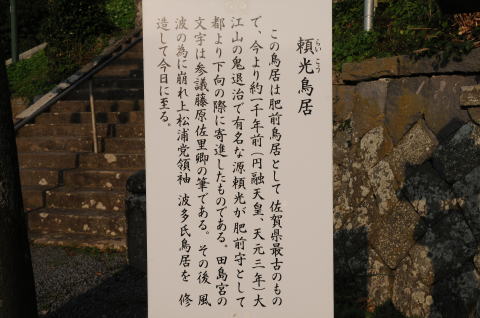 らいこう
頼光鳥居
この鳥居は肥前鳥居として佐賀県最古のもの
で、今より約一千年前(円融天皇、天元三年)大
江山の鬼退治で有名な源頼光が肥前守として
都より下向の際に寄進したものである。田島宮の
文字は参議藤原佐里卿の筆である。その後 風
波の為に崩れ上松浦党領袖 波多氏鳥居を 修
造して今日に至る。